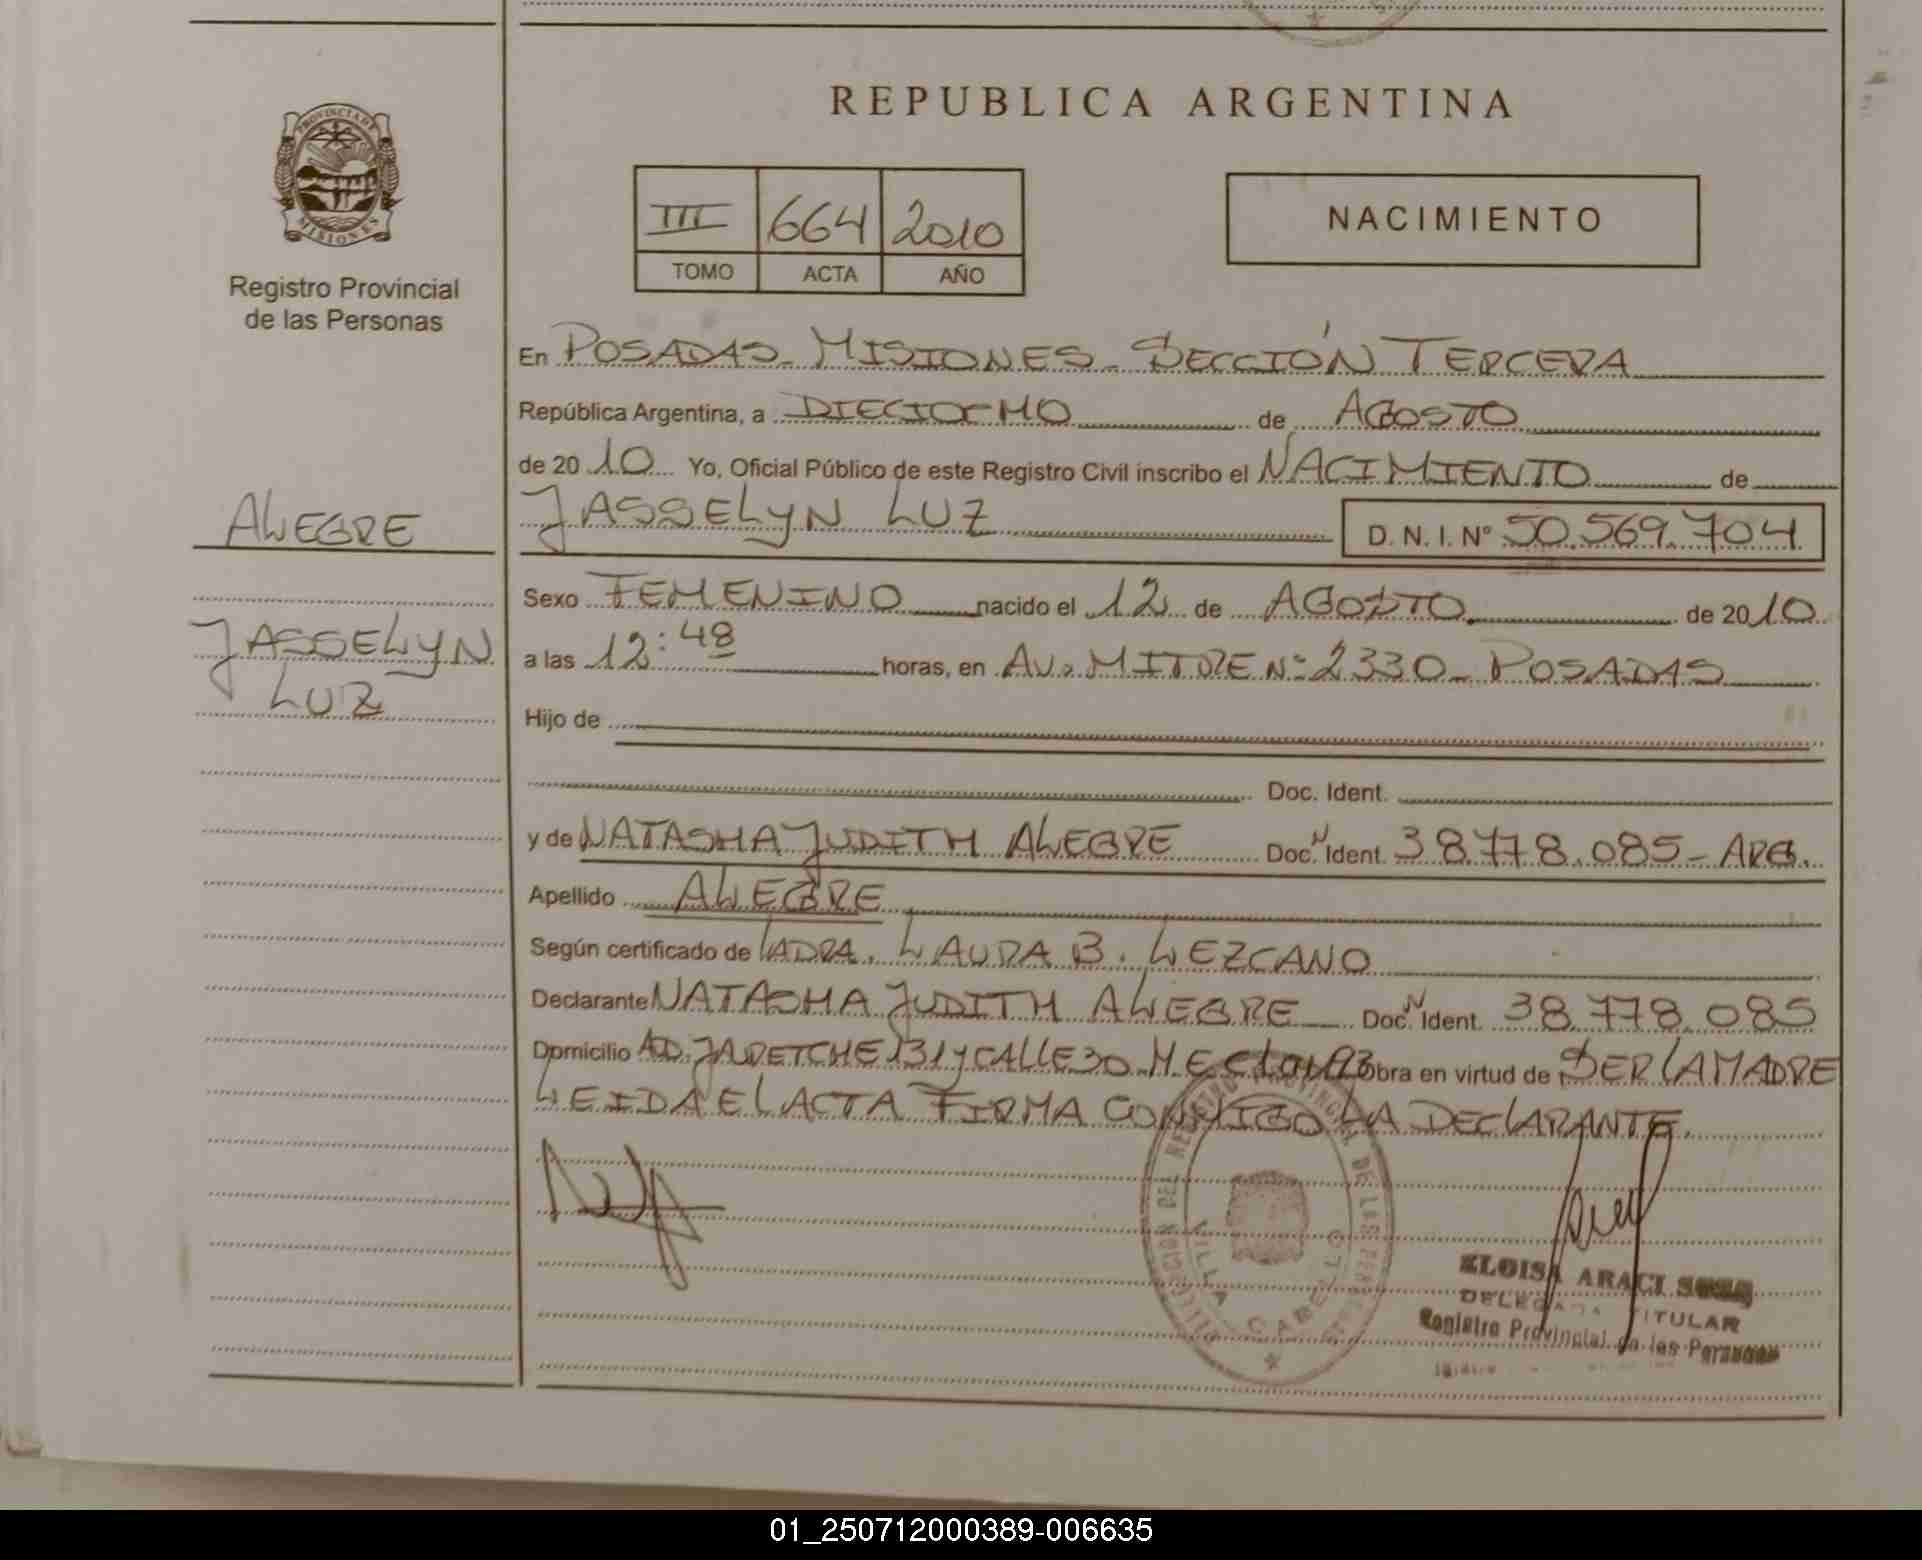 REPUBLICA ARGENTINA
PROVINCIA DE
MISIONES
Registro Provincial
de las Personas
III 664 2010
TOMO ACTA AÑO
NACIMIENTO
En POSADAS - MISIONES - SECCIÓN TERCERA
República Argentina, a DIECIOCHO de AGOSTO
de 20 10 Yo, Oficial Público de este Registro Civil inscribo el NACIMIENTO de
ALEGRE
JASSELYN LUZ
D. N. I. Nº 50.569.704
Sexo FEMENINO nacido el 12 de AGOSTO de 20 10
JASSELYN
LUZ
a las 12:48 horas, en AV. MITRE Nº 2330 - POSADAS
Hijo de
Doc. Ident.
y de NATASHA JUDITH ALEGRE Doc. N Ident. 38.778.085 - ARG.
Apellido ALEGRE
Según certificado de LA DRA. LAURA B. LEZCANO
Declarante NATASHA JUDITH ALEGRE Doc. N Ident. 38.778.085
Domicilio JARETCHE 131 y CALLE 30 obra en virtud de SER LA MADRE
LEIDA EL ACTA FIRMA CONMIGO LA DECLARANTE.
VILLA CABELLO
ELOISA ARACI
DELEGADA TITULAR
Registro Provincial de las Personas
01_250712000389-006635